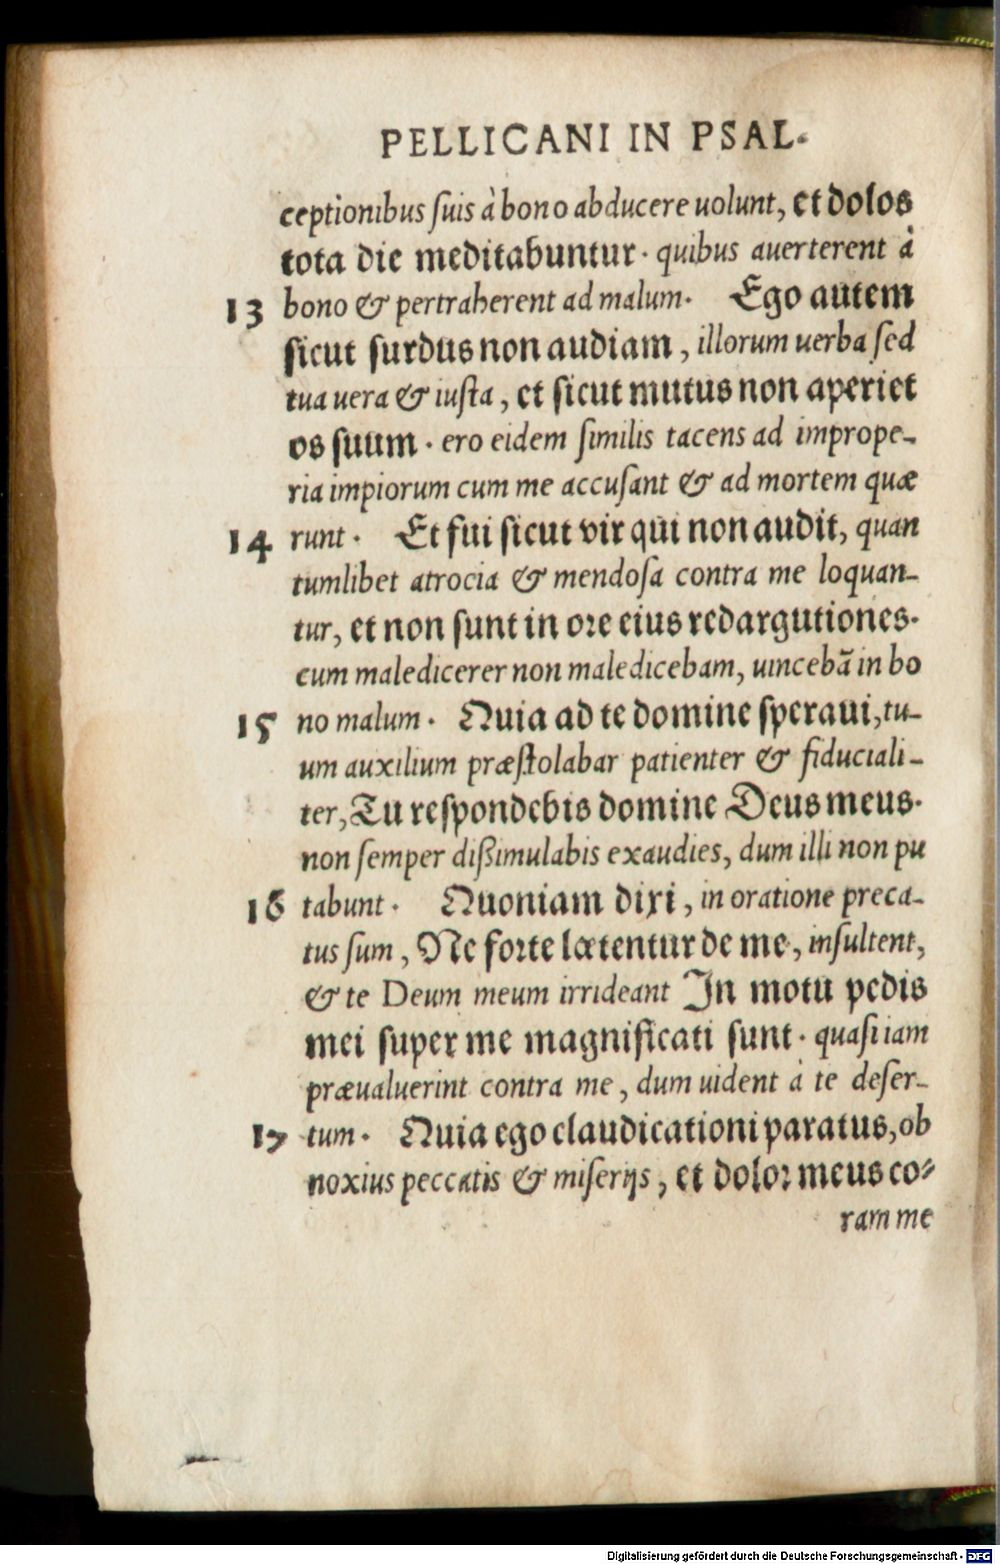 PELLICANI IN PSAL.
ceptionibus suis à bono abducere uolunt, et dolos
tota die meditabuntur. quibus auerterent à
13 bono & pertraherent ad malum. Ego autem
sicut surdus non audiam, illorum uerba sed
tua uera & iusta, et sicut mutus non aperiet
os suum. ero eidem similis tacens ad imprope-
ria impiorum cum me accusant & ad mortem quæ
14 runt. Et fui sicut vir qui non audit, quan
tumlibet atrocia & mendosa contra me loquan-
tur, et non sunt in ore eius redargutiones.
cum maledicerer non maledicebam, uincebā in bo
15 no malum. Quia ad te domine speraui, tu-
um auxilium præstolabar patienter & fiduciali-
ter, Tu respondebis domine Deus meus.
non semper dißimulabis exaudies, dum illi non pu
16 tabunt. Quoniam dixi, in oratione preca-
tus sum, Ne forte lætentur de me, insultent,
& te Deum meum irrideant In motu pedis
mei super me magnificati sunt. quasi iam
præualuerint contra me, dum uident à te deser-
17 tum. Quia ego claudicationi paratus, ob
noxius peccatis & miserijs, et dolor meus co-
ram me
Digitalisierung gefördert durch die Deutsche Forschungsgemeinschaft - DFG